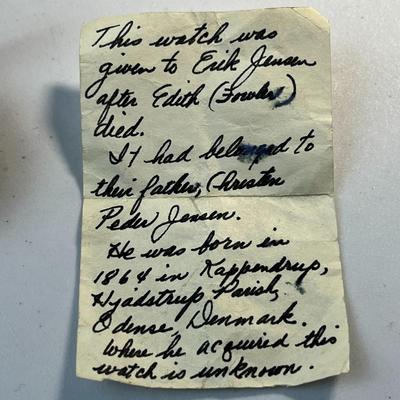 This watch was
given to Erik Jensen
after Edith (Fowler)
died.
It had belonged to
their father, Christen
Peder Jensen.
He was born in
1864 in Kappendrup,
Hjadstrup Parish,
Odense, Denmark.
Where he acquired this
watch is unknown.